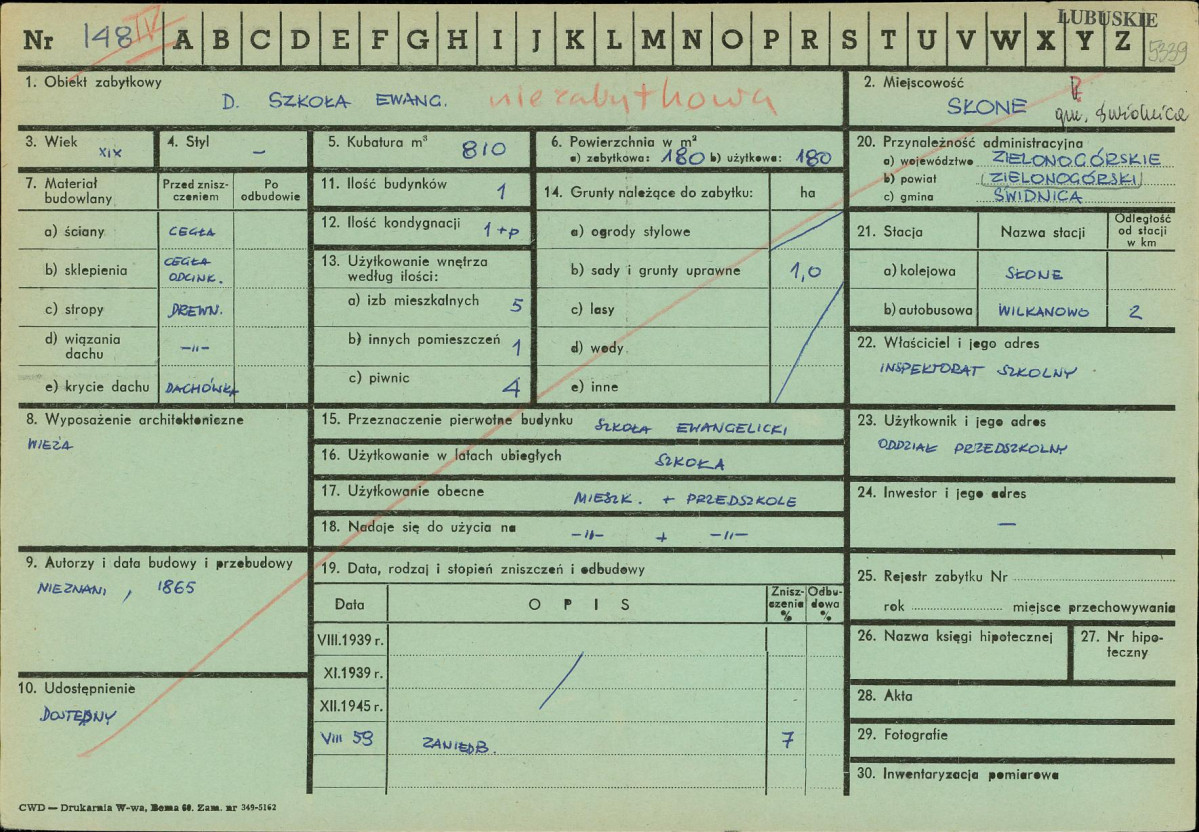 LUBUSKIE
Nr 148 IV A B C D E F G H I J K L M N O P R S T U V W X Y Z
5339
1. Obiekt zabytkowy
D. SZKOŁA EWANG. niezabytkowa
2. Miejscowość
SŁONE
gm. Świdnica
3. Wiek XIX
4. Styl —
5. Kubatura m³ 810
6. Powierzchnia w m²
a) zabytkowa: 180 b) użytkowa: 180
20. Przynależność administracyjna
a) województwo ZIELONOGÓRSKIE
b) powiat (ZIELONOGÓRSKI)
c) gmina ŚWIDNICA
7. Materiał budowlany
Przed znisz-
czeniem
Po
odbudowie
a) ściany CEGŁA
b) sklepienia CEGŁA
ODCINK.
c) stropy DREWN.
d) wiązania
dachu —"—
e) krycie dachu DACHÓWKA
11. Ilość budynków 1
12. Ilość kondygnacji 1+p
13. Użytkowanie wnętrza
według ilości:
a) izb mieszkalnych 5
b) innych pomieszczeń 1
c) piwnic 4
14. Grunty należące do zabytku: ha
a) ogrody stylowe
b) sady i grunty uprawne 1,0
c) lasy
d) wody
e) inne
21. Stacja
Nazwa stacji
Odległość
od stacji
w km
a) kolejowa SŁONE
b) autobusowa WILKANOWO 2
22. Właściciel i jego adres
INSPEKTORAT SZKOLNY
8. Wyposażenie architektoniczne
WIEŻA
15. Przeznaczenie pierwotne budynku SZKOŁA EWANGELICKI
16. Użytkowanie w latach ubiegłych SZKOŁA
17. Użytkowanie obecne MIESZK. + PRZEDSZKOLE
18. Nadaje się do użycia na —"— + —"—
23. Użytkownik i jego adres
ODDZIAŁ PRZEDSZKOLNY
24. Inwestor i jego adres
—
9. Autorzy i data budowy i przebudowy
NIEZNANI, 1865
19. Data, rodzaj i stopień zniszczeń i odbudowy
Data
O P I S
Znisz-
czenia
%
Odbu-
dowa
%
VIII.1939 r.
XI.1939 r.
XII.1945 r.
VIII 59 ZANIEDB. 7
25. Rejestr zabytku Nr
rok miejsce przechowywania
26. Nazwa księgi hipotecznej
27. Nr hipo-
teczny
10. Udostępnienie
DOSTĘPNY
28. Akta
29. Fotografie
30. Inwentaryzacja pomiarowa
CWD — Drukarnia W-wa, Bema 60. Zam. nr 349-5162